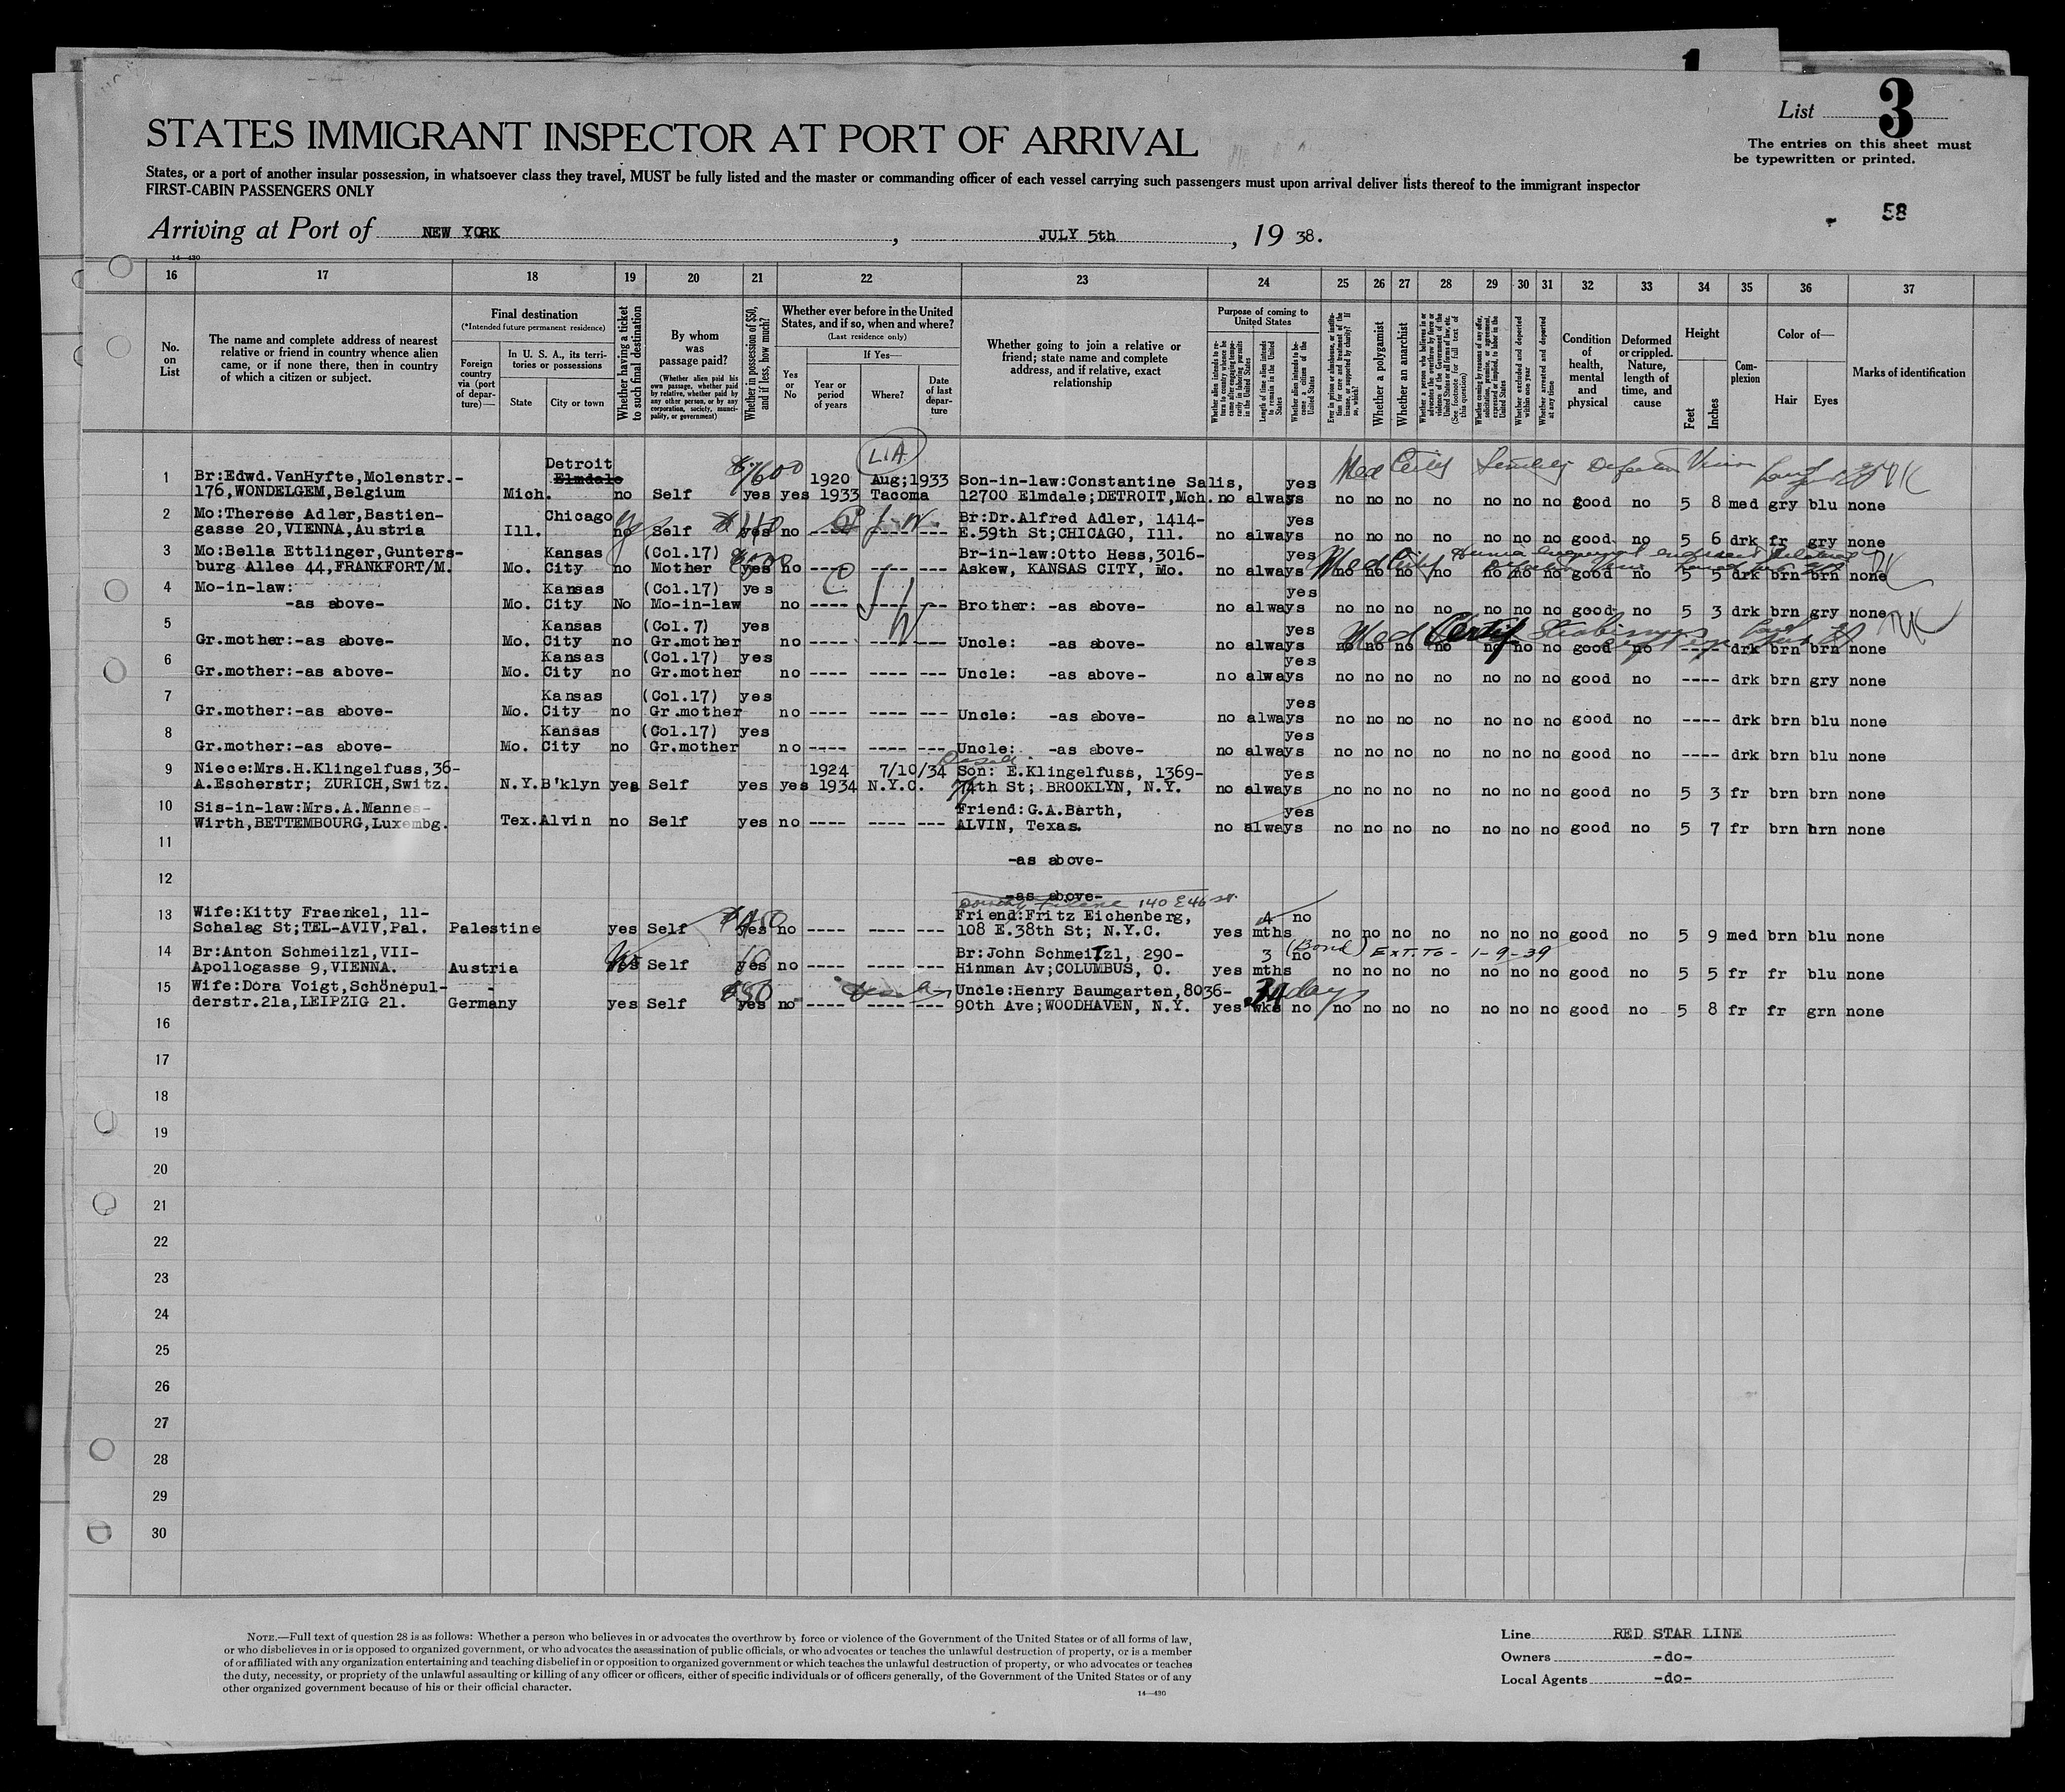 1
List 3
The entries on this sheet must
be typewritten or printed.
STATES IMMIGRANT INSPECTOR AT PORT OF ARRIVAL
States, or a port of another insular possession, in whatsoever class they travel, MUST be fully listed and the master or commanding officer of each vessel carrying such passengers must upon arrival deliver lists thereof to the immigrant inspector
FIRST-CABIN PASSENGERS ONLY
58
Arriving at Port of NEW YORK, JULY 5th, 19 38.
14—430
16 17 18 19 20 21 22 23 24 25 26 27 28 29 30 31 32 33 34 35 36 37
No. on List
The name and complete address of nearest relative or friend in country whence alien came, or if none there, then in country of which a citizen or subject.
Final destination
(*Intended future permanent residence)
Foreign country via (port of departure)—
In U. S. A., its territories or possessions
State
City or town
Whether having a ticket to such final destination
By whom was passage paid?
(Whether alien paid his own passage, whether paid by relative, whether paid by any other person, or by any corporation, society, municipality, or government)
Whether in possession of $50, and if less, how much?
Whether ever before in the United States, and if so, when and where?
(Last residence only)
Yes or No
If Yes—
Year or period of years
Where?
Date of last departure
Whether going to join a relative or friend; state name and complete address, and if relative, exact relationship
Purpose of coming to United States
Whether alien intends to return to country whence he came after engaging temporarily in laboring pursuits in the United States
Length of time alien intends to remain in the United States
Whether alien intends to become a citizen of the United States
Ever in prison or almshouse, or institution for care and treatment of the insane, or supported by charity? If so, which?
Whether a polygamist
Whether an anarchist
Whether a person who believes in or advocates the overthrow by force or violence of the Government of the United States or all forms of law, etc. (See footnote for full text of this question)
Whether coming by reasons of any offer, solicitation, promise, or agreement, expressed or implied, to labor in the United States
Whether excluded and deported within one year
Whether arrested and deported at any time
Condition of health, mental and physical
Deformed or crippled. Nature, length of time, and cause
Height
Feet
Inches
Complexion
Color of—
Hair
Eyes
Marks of identification
L.A.
Detroit $1600 Med Certif Senility Defective Vision
1 Br:Edwd.VanHyfte,Molenstr.- Elmdale 1920 Aug;1933 Son-in-law:Constantine Salis, yes
176,WONDELGEM,Belgium Mich. no Self yes yes 1933 Tacoma 12700 Elmdale;DETROIT,Mch. no always no no no no no no no good no 5 8 med gry blu none
2 Mo:Therese Adler,Bastien- Chicago Br:Dr.Alfred Adler, 1414- yes
gasse 20,VIENNA,Austria Ill. no Self yes no ---- ---- --- E.59th St;CHICAGO, Ill. no always no no no no no no no good no 5 6 drk fr gry none
3 Mo:Bella Ettlinger,Gunters- Kansas (Col.17) Br-in-law:Otto Hess,3016- yes
burg Allee 44,FRANKFORT/M. Mo. City no Mother yes no ---- ---- --- Askew, KANSAS CITY, Mo. no always Med Certif no no no no no no no good no 5 5 drk brn brn none
4 Mo-in-law: Kansas (Col.17) yes yes
-as above- Mo. City No Mo-in-law no ---- ---- --- Brother: -as above- no always no no no no no no no good no 5 3 drk brn gry none
5 Kansas (Col.7) yes yes Med Certif
Gr.mother:-as above- Mo. City no Gr.mother no ---- ---- --- Uncle: -as above- no always no no no no no no no good no ---- drk brn brn none
6 Kansas (Col.17) yes yes
Gr.mother:-as above- Mo. City no Gr.mother no ---- ---- --- Uncle: -as above- no always no no no no no no no good no ---- drk brn gry none
7 Kansas (Col.17) yes yes
Gr.mother:-as above- Mo. City no Gr.mother no ---- ---- --- Uncle: -as above- no always no no no no no no no good no ---- drk brn blu none
8 Kansas (Col.17) yes yes
Gr.mother:-as above- Mo. City no Gr.mother no ---- ---- --- Uncle: -as above- no always no no no no no no no good no ---- drk brn blu none
9 Niece:Mrs.H.Klingelfuss,36- 1924 7/10/34 Son: E.Klingelfuss, 1369- yes
A.Escherstr; ZURICH,Switz. N.Y. B'klyn yes Self yes yes 1934 N.Y.C. 74th St; BROOKLYN, N.Y. no always no no no no no no no good no 5 3 fr brn brn none
10 Sis-in-law:Mrs.A.Mannes- Friend:G.A.Barth, yes
Wirth,BETTEMBOURG,Luxembg. Tex. Alvin no Self yes no ---- ---- --- ALVIN, Texas. no always no no no no no no no good no 5 7 fr brn brn none
11
-as above-
12
-as above-
140 E 46 St.
13 Wife:Kitty Fraenkel, 11- Friend:Fritz Eichenberg, 4 no
Schalag St;TEL-AVIV,Pal. Palestine yes Self yes no ---- ---- --- 108 E.38th St; N.Y.C. yes mths no no no no no no no good no 5 9 med brn blu none
14 Br:Anton Schmeilzl,VII- Br:John SchmeiTzl, 290- 3 no (Bond) EXT. TO - 1-9-39
Apollogasse 9,VIENNA. Austria yes Self yes no ---- ---- --- Hinman Av;COLUMBUS, O. yes mths no no no no no no no good no 5 5 fr fr blu none
15 Wife:Dora Voigt,Schönepul- $80 Uncle:Henry Baumgarten,8036- days
derstr.21a,LEIPZIG 21. Germany yes Self yes no ---- ---- --- 90th Ave;WOODHAVEN, N.Y. yes wks no no no no no no no no good no 5 8 fr fr grn none
16
17
18
19
20
21
22
23
24
25
26
27
28
29
30
NOTE.—Full text of question 28 is as follows: Whether a person who believes in or advocates the overthrow by force or violence of the Government of the United States or of all forms of law,
or who disbelieves in or is opposed to organized government, or who advocates the assassination of public officials, or who advocates or teaches the unlawful destruction of property, or is a member
of or affiliated with any organization entertaining and teaching disbelief in or opposition to organized government or which teaches the unlawful destruction of property, or who advocates or teaches
the duty, necessity, or propriety of the unlawful assaulting or killing of any officer or officers, either of specific individuals or of officers generally, of the Government of the United States or of any
other organized government because of his or their official character.
14—430
Line RED STAR LINE
Owners -do-
Local Agents -do-